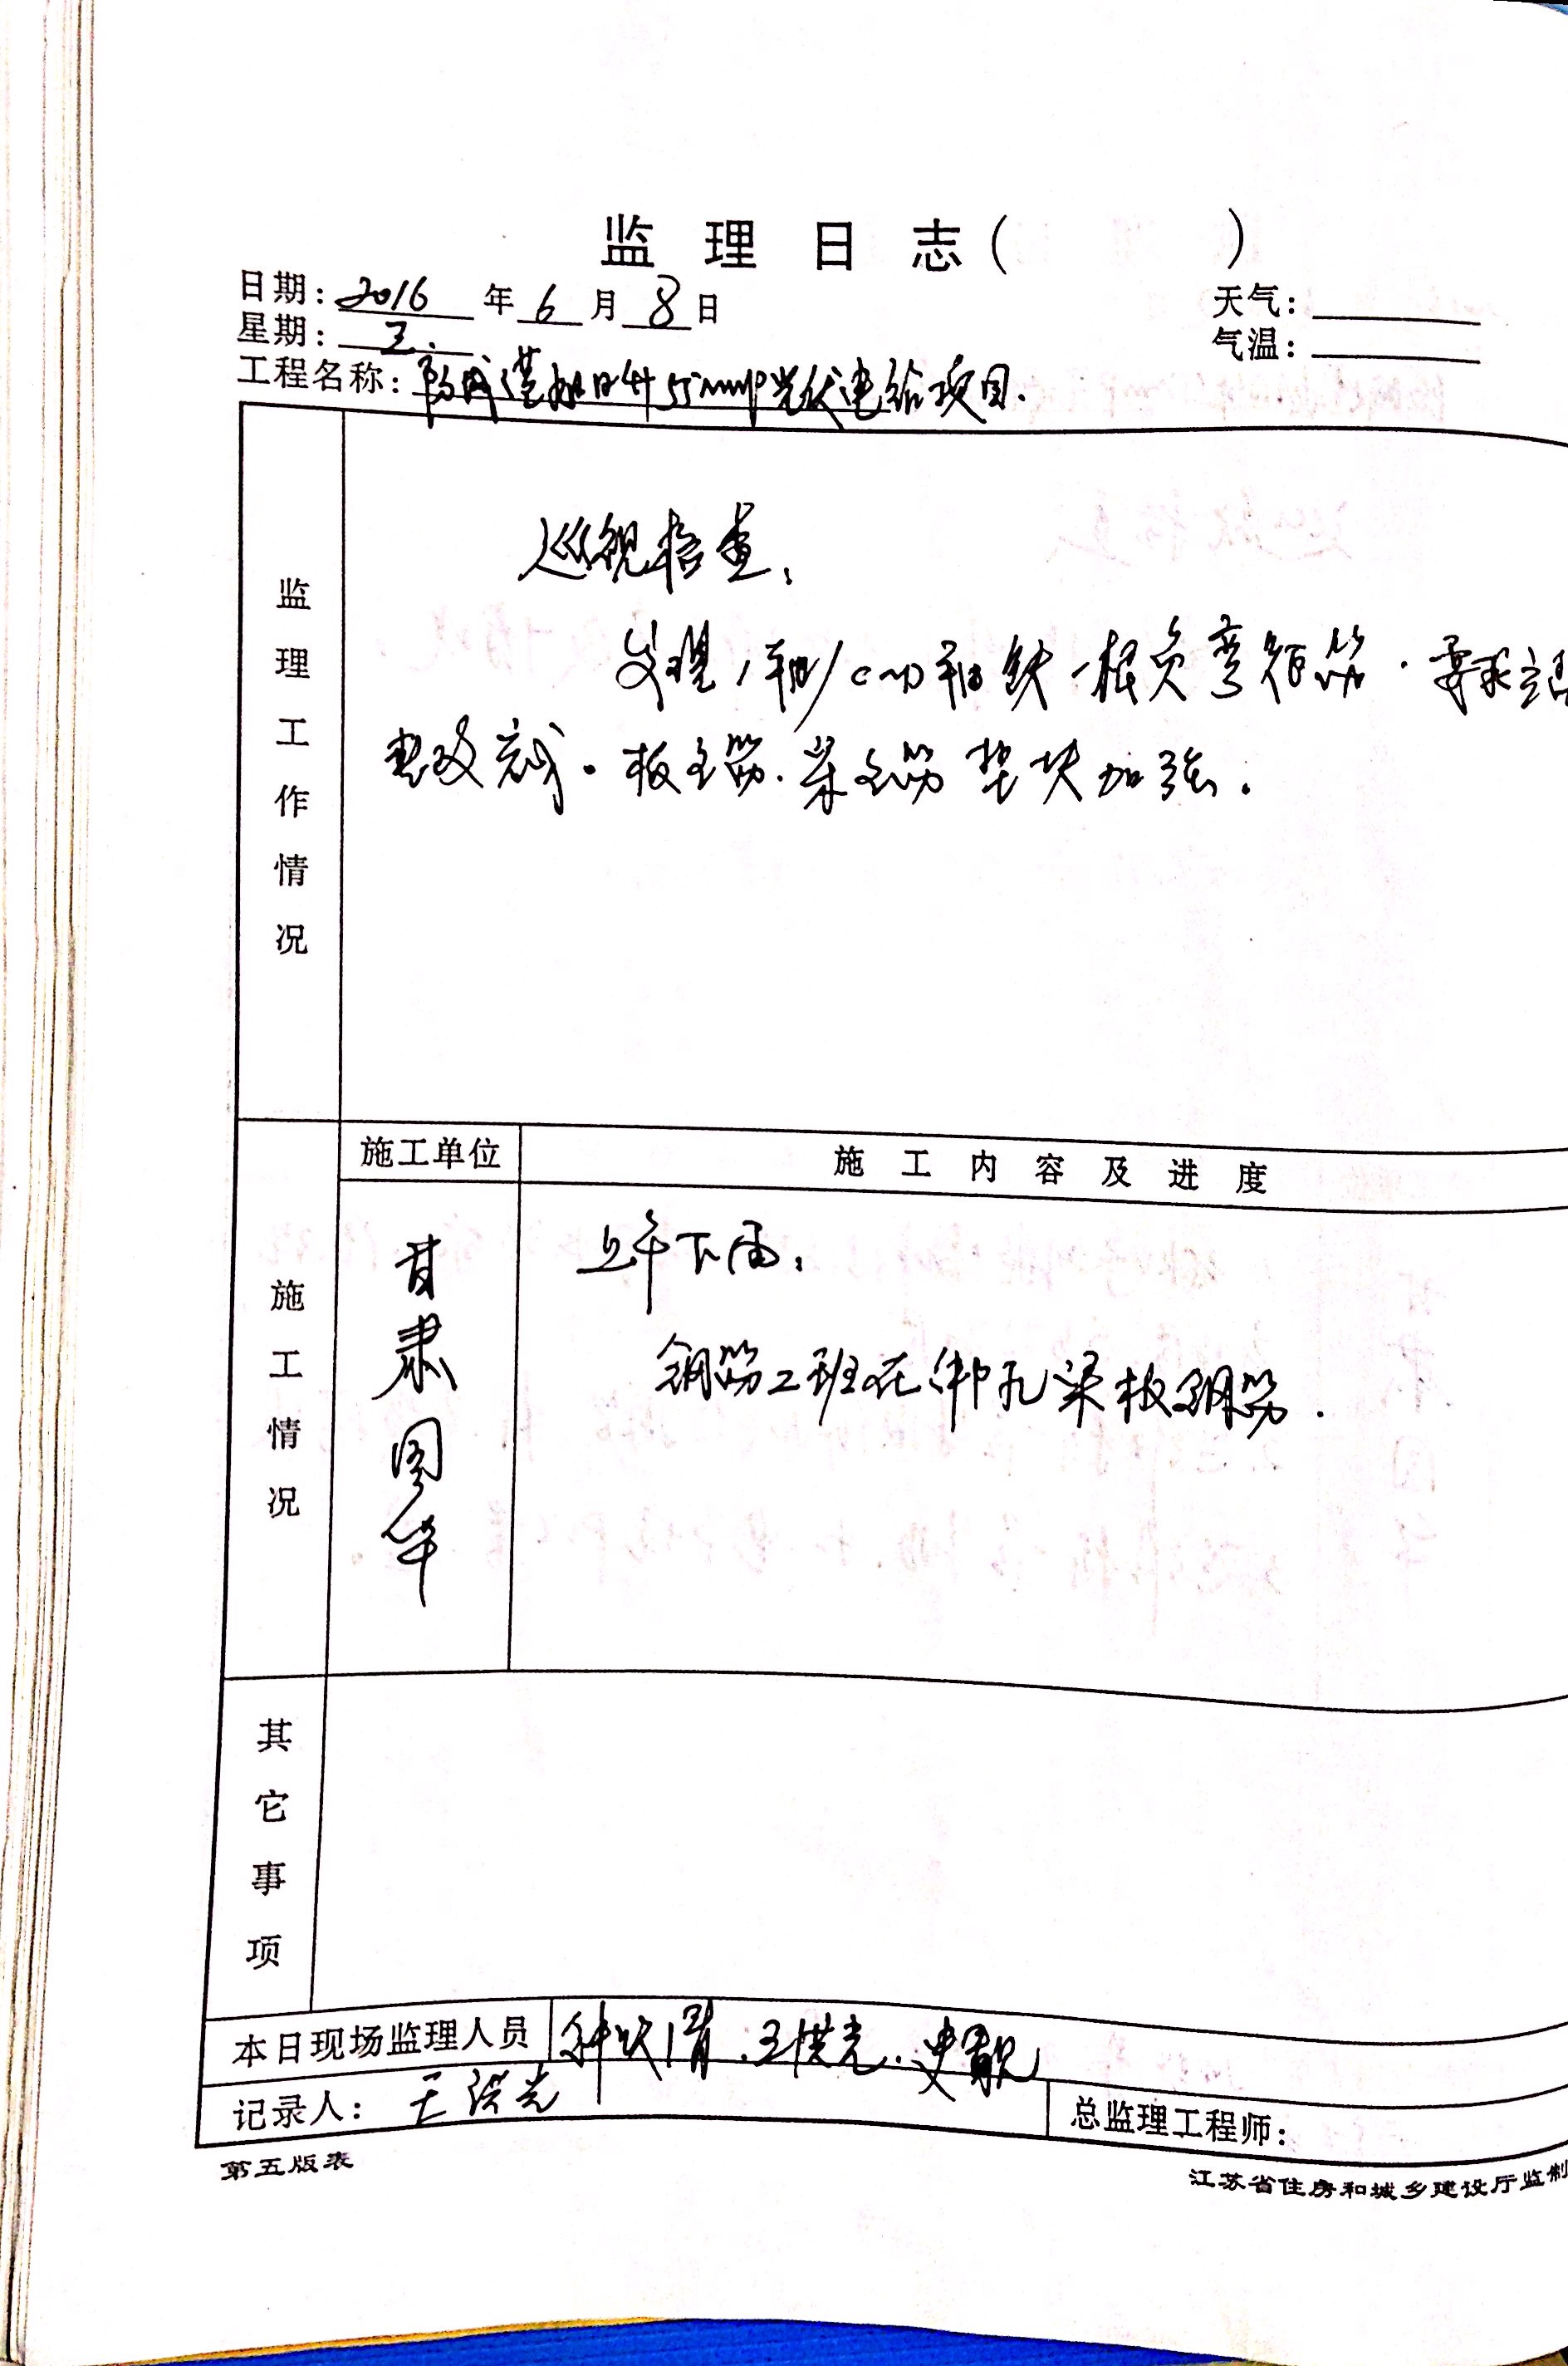 监理日志（ ）
日期：2016年6月8日
天气：
星期：三.
气温：
工程名称：防城港 光伏电 项目.
监理工作情况
巡视检查：
发现1轴/C~D轴缺一根负弯矩筋．要求
整改完成。板主筋．梁主筋垫块加强．
施工情况
施工单位
施工内容及进度
甘肃国华
上午下雨：
钢筋工班在绑扎梁板钢筋．
其它事项
本日现场监理人员 王洪光．史
记录人：王洪光
总监理工程师：
第五版表
江苏省住房和城乡建设厅监制